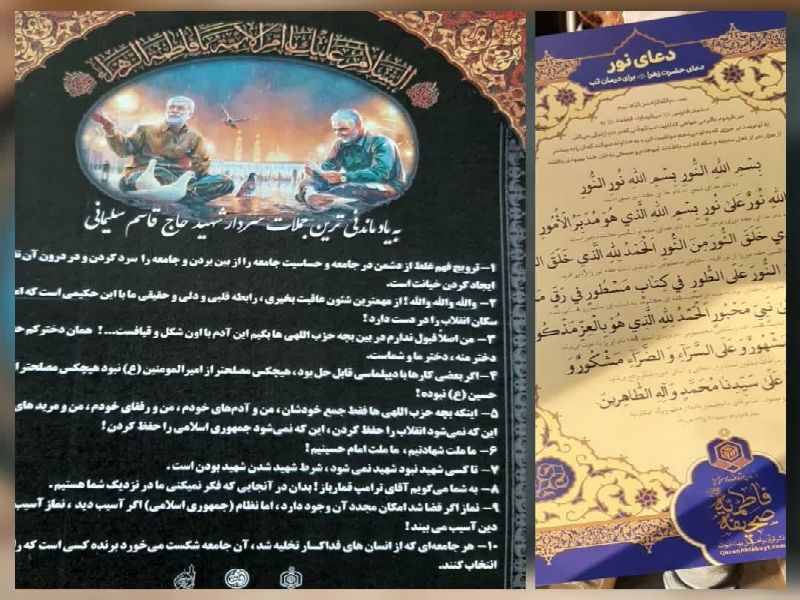 السلام علیک یا ام الائمة یا فاطمة الزهراء
به یاد ماندنی ترین جملات سردار شهید حاج قاسم سلیمانی
۱– ترویج فهم غلط از دشمن در جامعه و حساسیت جامعه را از بین بردن و جامعه را سرد کردن و در درون آن
ایجاد کردن خیانت است.
۲– والله والله والله ! از مهمترین شئون عاقبت بخیری ، رابطه قلبی و دلی و حقیقی ما با این حکیمی است که
سکان انقلاب را در دست دارد !
۳– من اصلاً قبول ندارم در بین بچه حزب اللهی ها بگیم این آدم با اون شکل و قیافست...! همان دختر کم
دختر منه ، دختر ما و شماست.
۴– اگر بعضی کارها با دیپلماسی قابل حل بود ، هیچکس مصلحتر از امیرالمومنین (ع) نبود هیچکس مصلحتر
حسین (ع) نبوده !
۵– اینکه بچه حزب اللهی ها فقط جمع خودشان ، من و آدم‌های خودم ، من و رفقای خودم ، من و مرید های
این که نمی‌شود انقلاب را حفظ کردن ، این که نمی‌شود جمهوری اسلامی را حفظ کردن !
۶– ما ملت شهادتیم ، ما ملت امام حسینیم !
۷– تا کسی شهید نبود شهید نمی شود ، شرط شهید شدن شهید بودن است .
۸– به شما می‌گویم آقای ترامپ قمارباز ! بدان در آنجایی که فکر نمیکنی ما در نزدیک شما هستیم .
۹– نماز اگر قضا شد امکان مجدد آن وجود دارد ، اما نظام (جمهوری اسلامی) اگر آسیب دید ، نماز آسیب
دین آسیب می بیند !
۱۰– هر جامعه‌ای که از انسان های فداکار تخلیه شد ، آن جامعه شکست می‌خورد برنده کسی است که
انتخاب کنند.
دعای نور
دعای حضرت زهرا برای درمان تب
بِسمِ اللهِ النُّورِ بِسمِ اللهِ نُورِ النُّورِ
اللهِ نُورٌ عَلی نُورٍ بِسمِ اللهِ الَّذي هُوَ مُدَبِّرُ الاُمُورِ
خَلَقَ النُّورَ مِنَ النُّورِ الحَمدُ لِلّهِ الَّذي خَلَقَ
النُّورَ عَلَی الطُّورِ في کِتابٍ مَسطُورٍ في رَقٍّ
نَبِيٍّ مَحبُورٍ الحَمدُ لِلّهِ الَّذي هُوَ بِالعِزِّ مَذکُورٌ
مَشهُورٌ وَ عَلَی السَّرّآءِ وَ الضَّرّآءِ مَشکُورٌ وَ
عَلی سَیِّدِنا مُحَمَّدٍ وَ آلِهِ الطّاهِرینَ
صحیفه فاطمیه
QuranAhlebayt.com